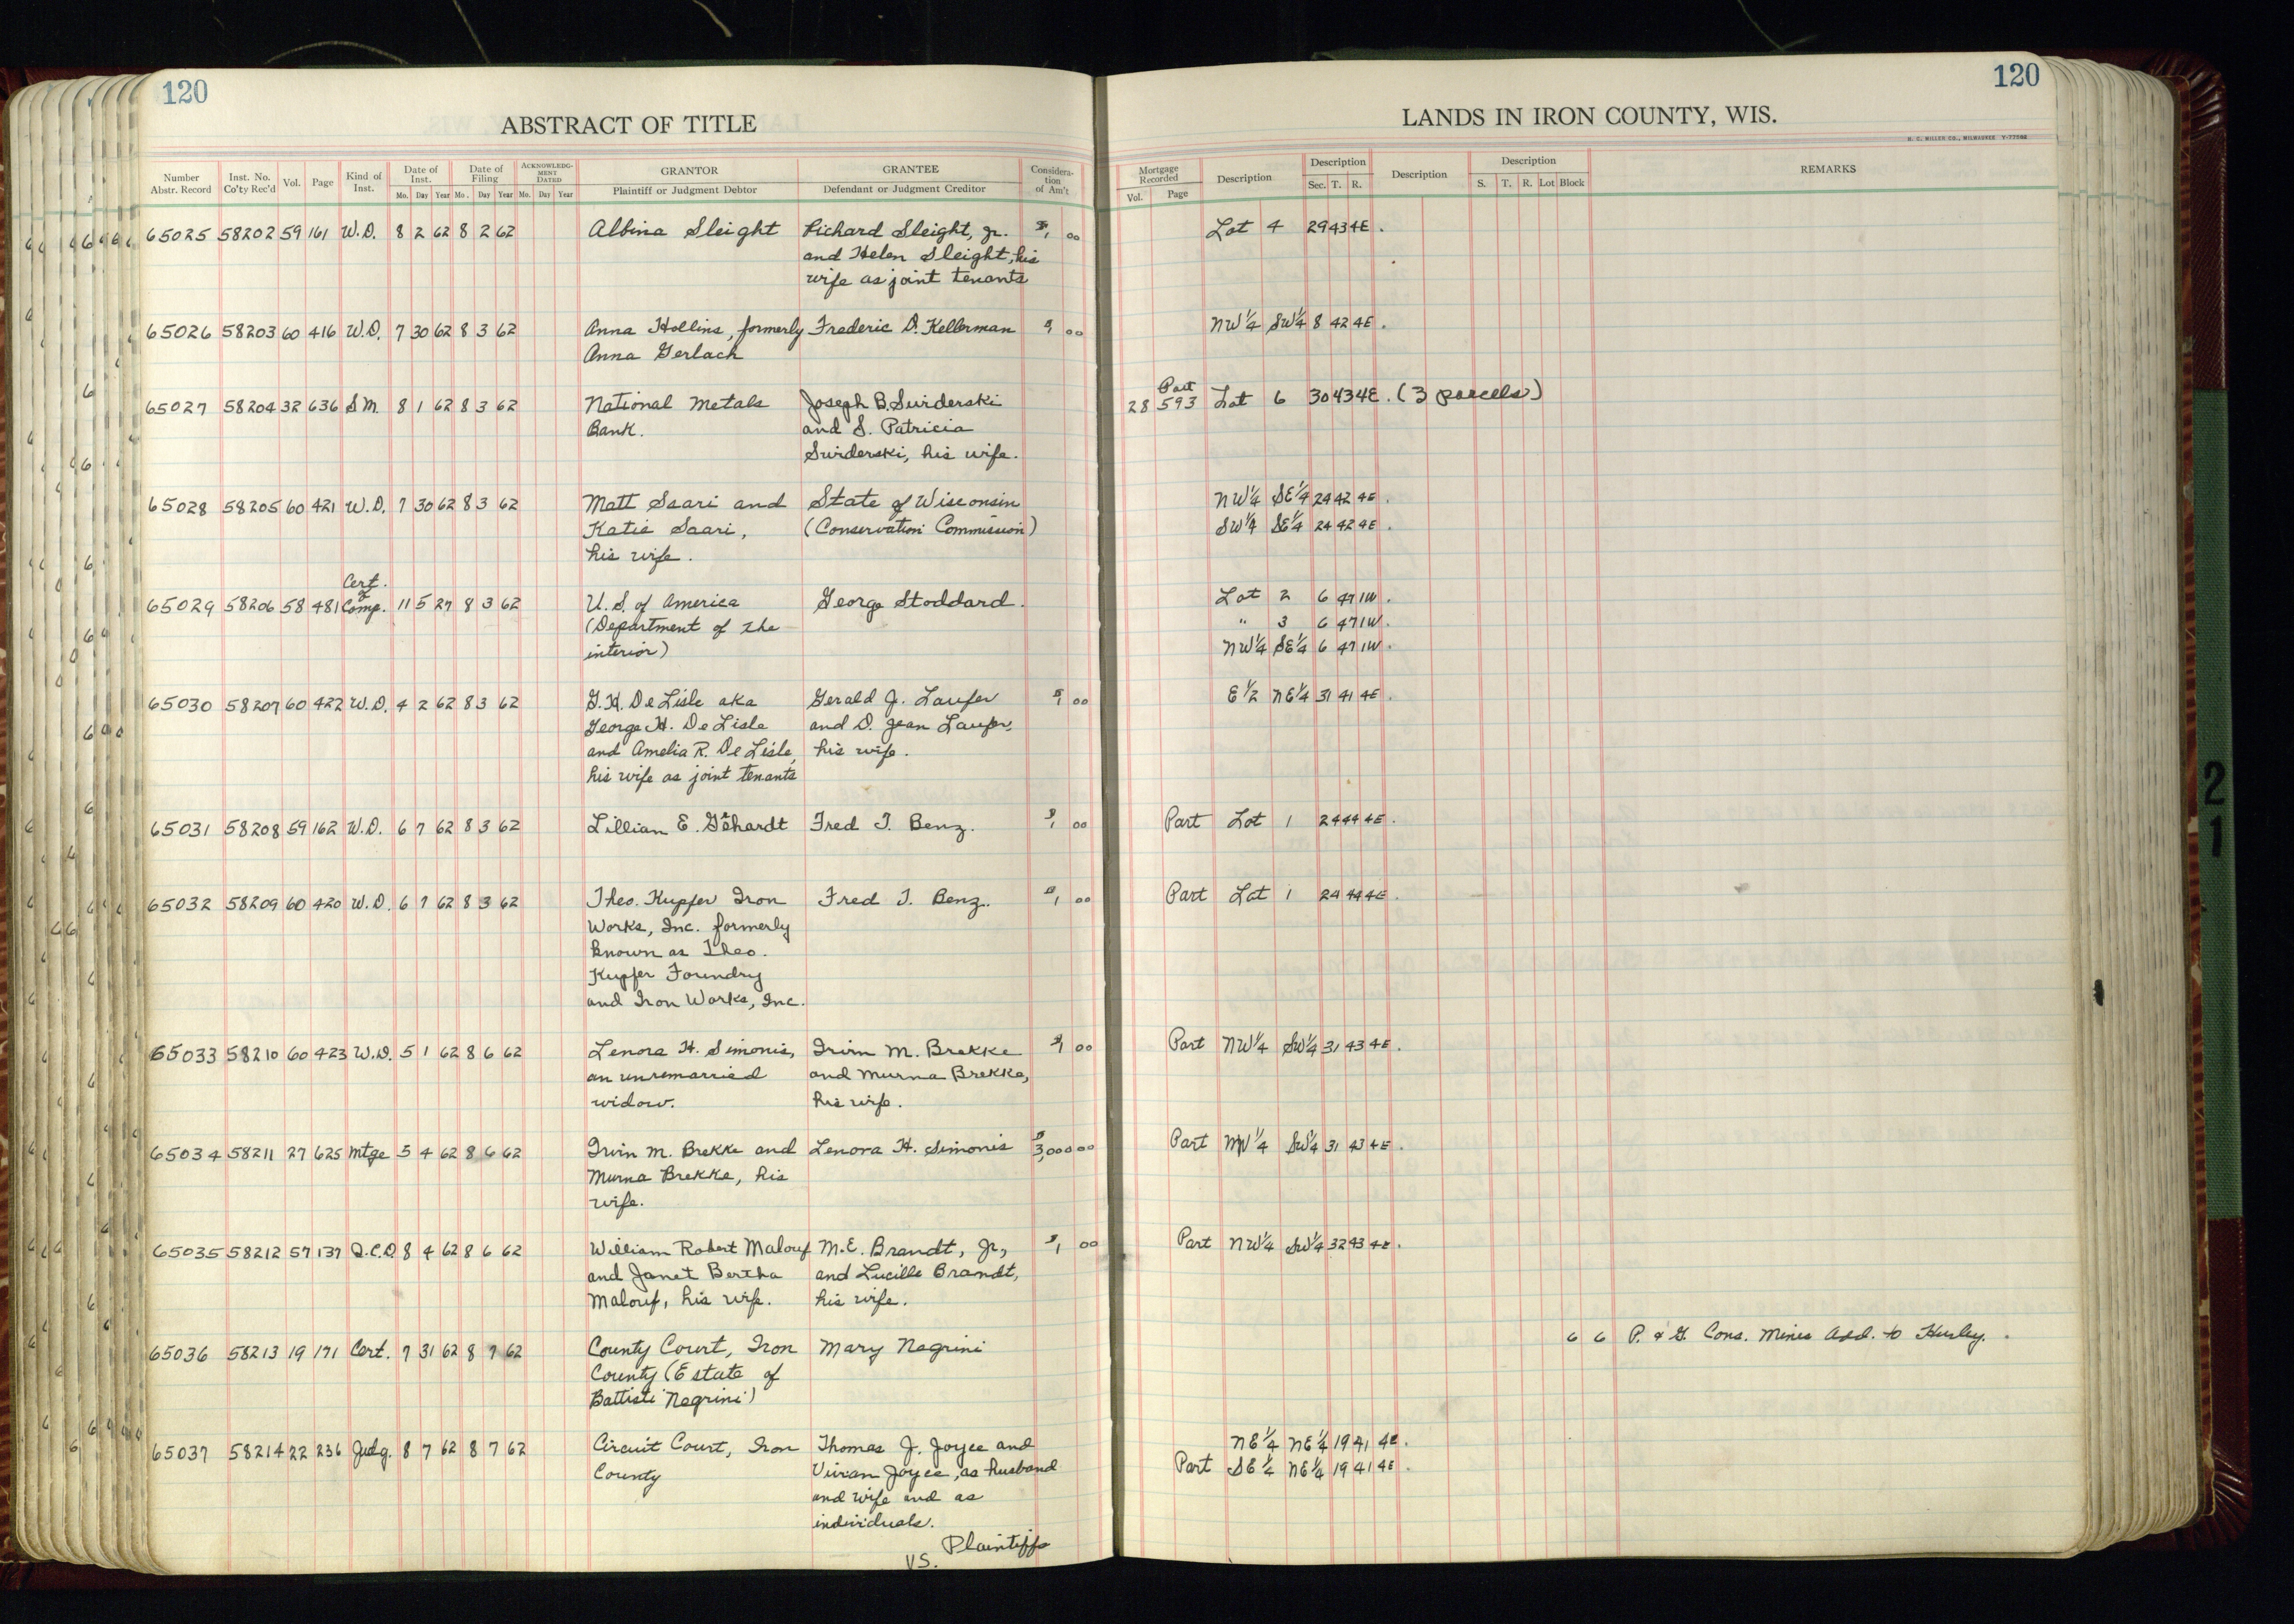 120
ABSTRACT OF TITLE
Number Abstr. Record
Inst. No. Co'ty Rec'd
Vol.
Page
Kind of Inst.
Date of Inst.
Mo. Day Year
Date of Filing
Mo. Day Year
ACKNOWLEDGMENT DATED
Mo. Day Year
GRANTOR
Plaintiff or Judgment Debtor
GRANTEE
Defendant or Judgment Creditor
Consideration of Am't
65025 58202 59 161 W.D. 8 2 62 8 2 62 Albina Sleight Richard Sleight, Jr. $1 00
and Helen Sleight, his
wife as joint tenants
65026 58203 60 416 W.D. 7 30 62 8 3 62 Anna Hollins, formerly Frederic D. Kellerman $1 00
Anna Gerlach
65027 58204 32 636 S.M. 8 1 62 8 3 62 National Metals Joseph B. Swiderski
Bank. and S. Patricia
Swiderski, his wife.
65028 58205 60 421 W.D. 7 30 62 8 3 62 Matt Saari and State of Wisconsin
Katie Saari, (Conservation Commission)
his wife.
Cert. of
65029 58206 58 481 Comp. 11 5 27 8 3 62 U.S. of America George Stoddard.
(Department of the
interior)
65030 58207 60 422 W.D. 4 2 62 8 3 62 G.H. De Lisle aka Gerald J. Laufer $1 00
George H. De Lisle and D. Jean Laufer,
and Amelia R. De Lisle, his wife.
his wife as joint tenants
65031 58208 59 162 W.D. 6 7 62 8 3 62 Lillian E. Fred T. Benz. $1 00
65032 58209 60 420 W.D. 6 7 62 8 3 62 Theo. Kupfer Iron Fred T. Benz. $1 00
Works, Inc. formerly
known as Theo.
Kupfer Foundry
and Iron Works, Inc.
65033 58210 60 423 W.D. 5 1 62 8 6 62 Lenora H. Simonis, Irvin M. Brekke $1 00
an unremarried and Murna Brekke,
widow. his wife.
65034 58211 27 625 Mtge 5 4 62 8 6 62 Irvin M. Brekke and Lenora H. Simonis $3,000 00
Murna Brekke, his
wife.
65035 58212 57 137 Q.C.D. 8 4 62 8 6 62 William Robert Malouf M.E. Brandt, Jr., $1 00
and Janet Bertha and Lucille Brandt,
Malouf, his wife. his wife.
65036 58213 19 171 Cert. 7 31 62 8 7 62 County Court, Iron Mary Negrini
County (Estate of
Battisti Negrini)
65037 58214 22 236 Judg. 8 7 62 8 7 62 Circuit Court, Iron Thomas J. Joyce and
County Vivian Joyce, as husband
and wife and as
individuals.
Plaintiffs
VS.
120
LANDS IN IRON COUNTY, WIS.
H. C. MILLER CO., MILWAUKEE
Mortgage Recorded
Vol. Page
Description
Description
Sec. T. R.
Description
Description
S. T. R. Lot Block
REMARKS
Lot 4 29 43 4E.
NW¼ SW¼ 8 42 4E.
Part
28 593 Lot 6 30 43 4E. (3 parcels)
NW¼ SE¼ 24 42 4E.
SW¼ SE¼ 24 42 4E.
Lot 2 6 47 1W.
" 3 6 47 1W.
NW¼ SE¼ 6 47 1W.
E½ NE¼ 31 41 4E.
Part Lot 1 24 44 4E.
Part Lot 1 24 44 4E.
Part NW¼ SW¼ 31 43 4E.
Part NW¼ SW¼ 31 43 4E.
Part NW¼ SW¼ 32 43 4E.
6 6 P. & G. Cons. Mines Add. to Hurley.
NE¼ NE¼ 19 41 4E.
Part SE¼ NE¼ 19 41 4E.
21